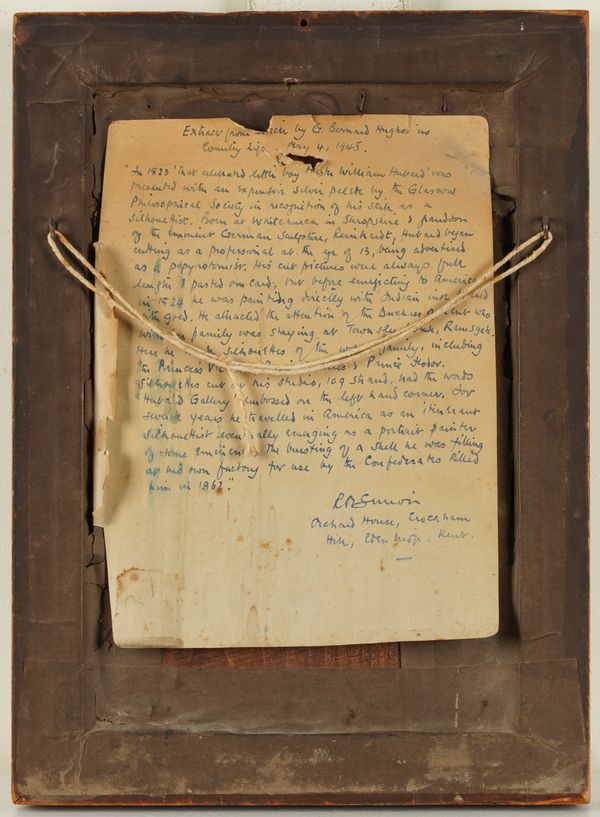 Extract from Article by G. Bernard Hughes in
Country Life May 4, 1945.
"In 1823 'That celebrated little boy Master William Hubard' was
presented with an expensive silver palette by the Glasgow
Philosophical Society in recognition of his skill as a
Silhouettist. Born at Whitchurch in Shropshire & grandson
of the eminent German Sculptor, Reinhardt, Hubard began
cutting as a professional at the age of 13, being advertised
as a papyrotomist. His cut pictures were always full
length & pasted on card, but before emigrating to America
in 1824 he was painting directly with Indian ink
with gold. He attracted the attention of the Duchess of Kent who
with family was staying at Townsley House, Ramsgate.
Here he silhouettes of the family, including
the Princess & Prince
Silhouettes cut at his studio, 109 Strand, had the words
"Hubard Gallery" embossed on the left hand corner. For
several years he travelled in America as an itinerant
Silhouettist eventually emerging as a portrait painter
of some eminence. The bursting of a shell he was filling
at his own factory for use by the Confederates killed
him in 1862."
Orchard House, Crockham
Hill, Kent.